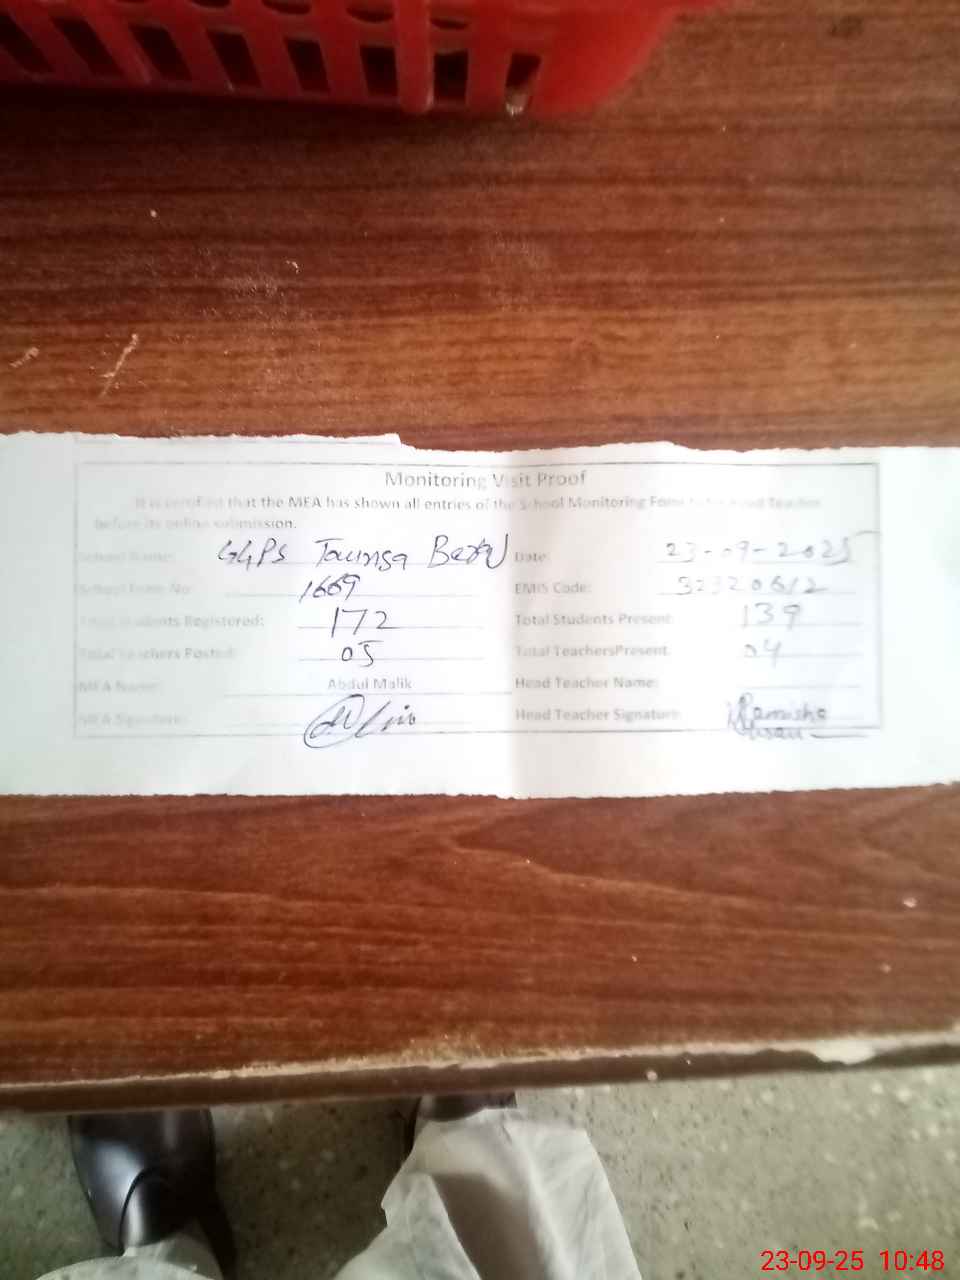 Monitoring Visit Proof
It is verified that the MEA has shown all entries of the School Monitoring Form to Head Teacher
before its online submission.
School Name: GGPS Taunsa Date: 23-09-2025
School Form No: 1669 EMIS Code: 32320612
Total Students Registered: 172 Total Students Present: 139
Total Teachers Posted: 05 Total TeachersPresent: 04
MEA Name: Abdul Malik Head Teacher Name:
MEA Signature: Head Teacher Signature:
23-09-25 10:48